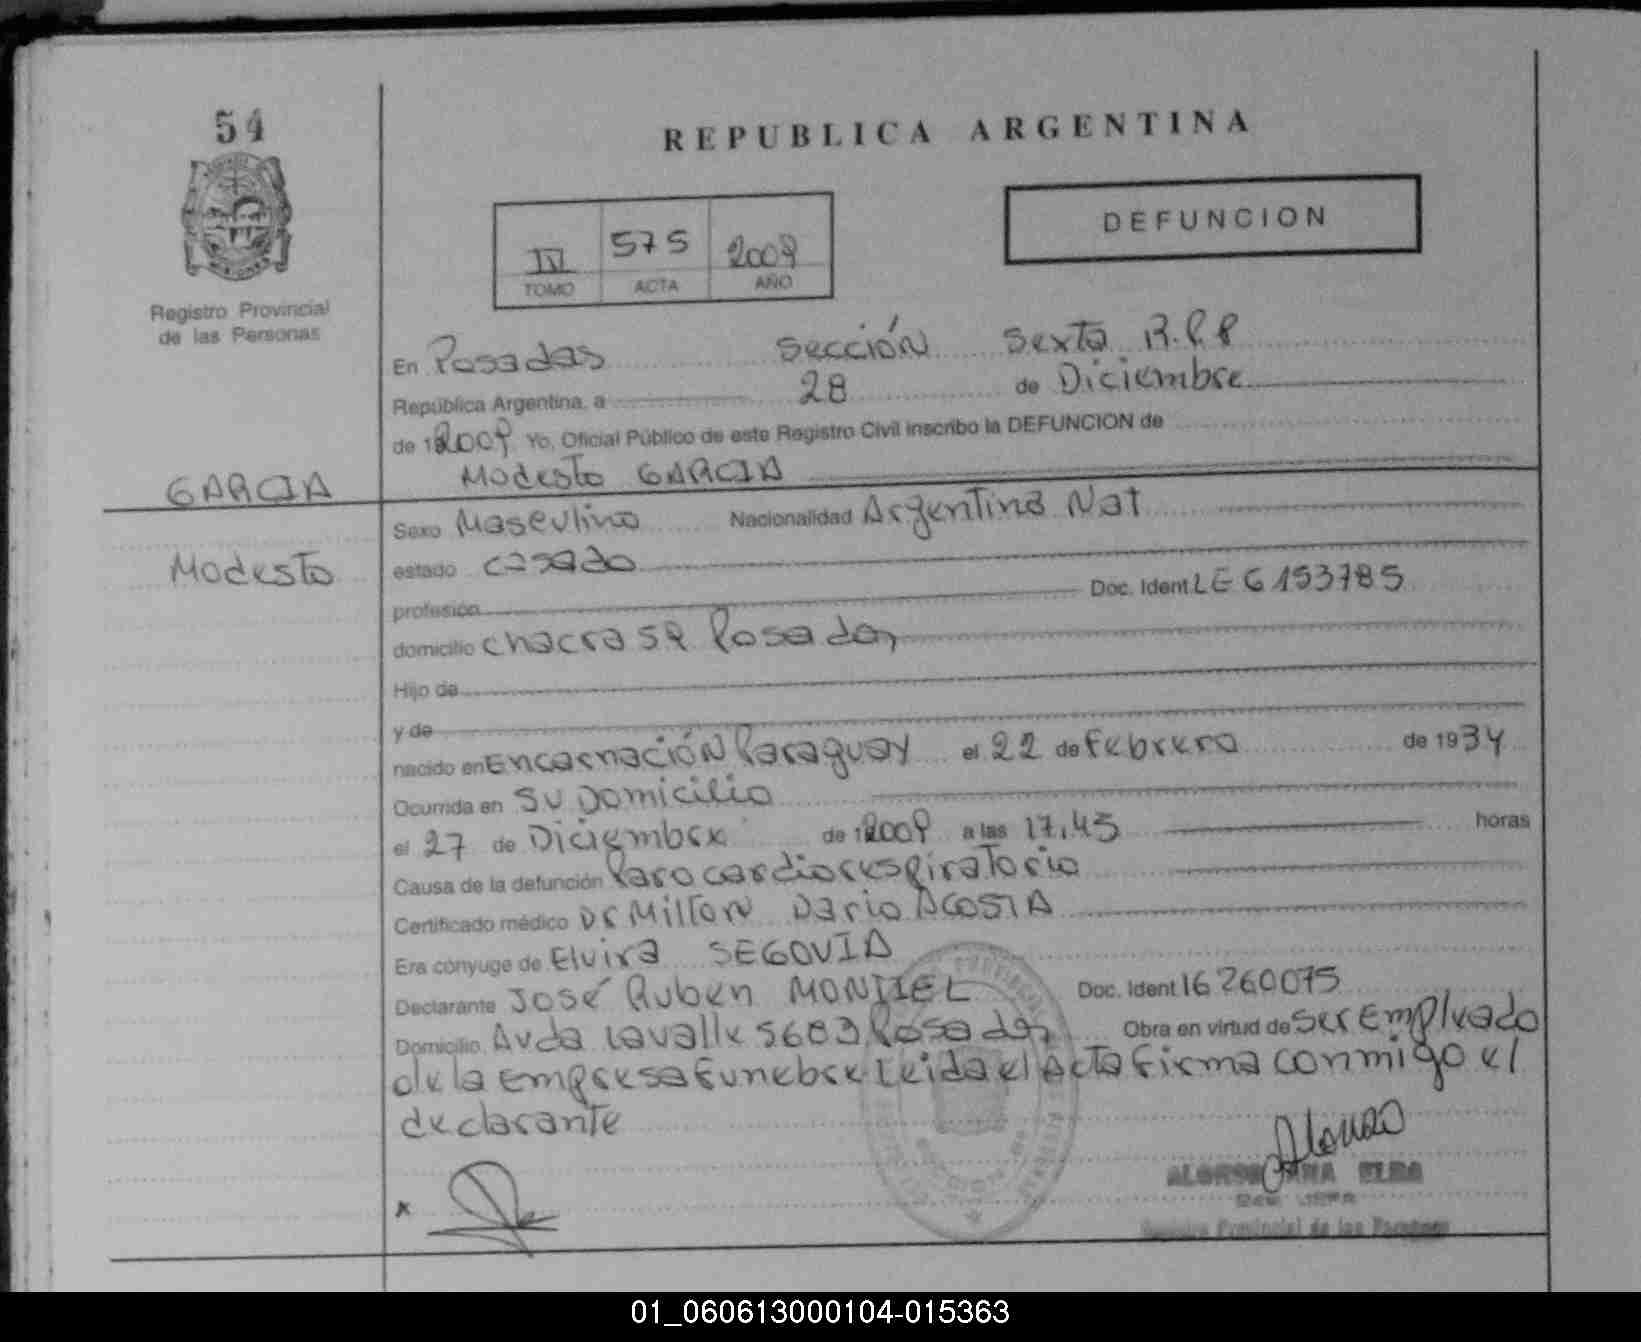 54
REPUBLICA ARGENTINA
DEFUNCION
IV 575 2009
TOMO ACTA AÑO
Registro Provincial
de las Personas
En Posadas Sección Sexta R.P.P
República Argentina, a 28 de Diciembre
de 12009 Yo, Oficial Público de este Registro Civil inscribo la DEFUNCION de
Modesto GARCIA
GARCIA
Modesto
Sexo Masculino Nacionalidad Argentina Nat
estado casado
profesión Doc. Ident LE 6153785
domicilio chacra 59 Posadas
Hijo de
y de
nacido en Encarnación Paraguay el 22 de Febrero de 1934
Ocurrida en su Domicilio
el 27 de Diciembre de 12009 a las 17,45 horas
Causa de la defunción Paro cardiorespiratorio
Certificado médico Dr Milton Dario ACOSTA
Era cónyuge de Elvira SEGOVIA
Declarante José Ruben MONTIEL Doc. Ident 16260075
Domicilio Avda Lavalle 5603 Posadas Obra en virtud de ser Empleado
de la Empresa Funebre Leida el Acta firma conmigo el
declarante
x
ALONSO ANA ELBA
Registro Provincial de las Personas
01_060613000104-015363